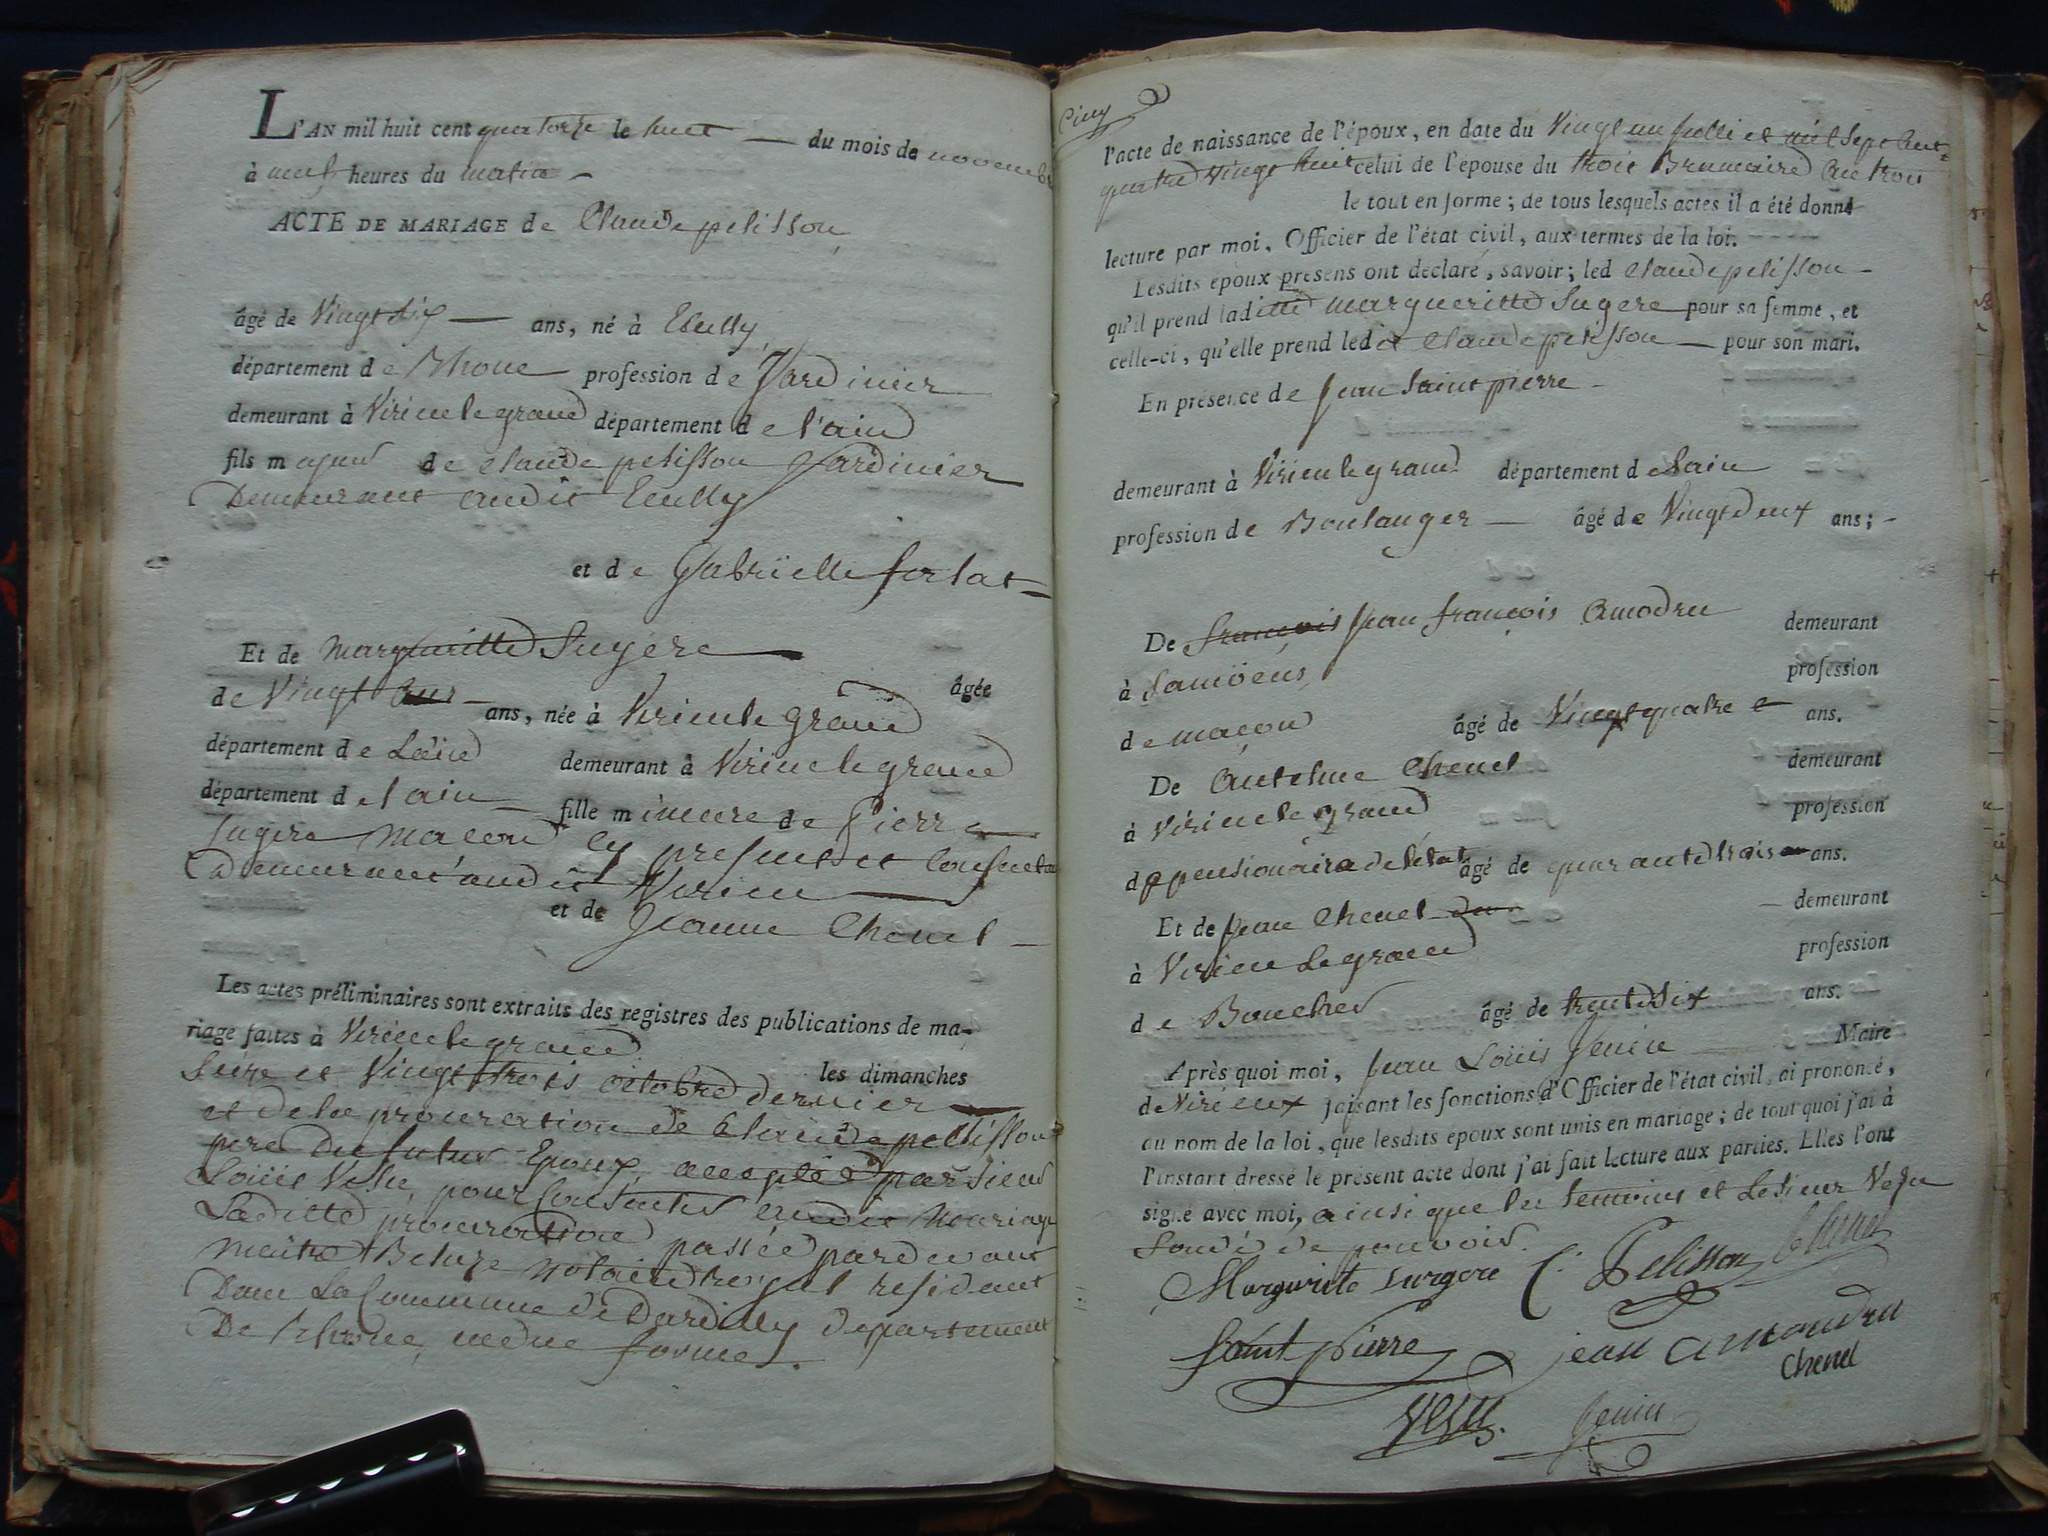 L'AN mil huit cent quatorze le huit — du mois de novembre
à neuf heures du matin —
ACTE DE MARIAGE de Claude pelisson
âgé de Vingt six — ans, né à Ecully
département de Rhone profession de Jardinier
demeurant à Virieu le grand département de l'ain
fils majeur de claude pelisson Jardinier
Demeurant audit Ecully
et de Gabrielle forlat —
Et de margueritte Sugere — âgée
de Vingt ans — ans, née à Virieu le grand
département de L'ain demeurant à Virieu le grand
département de l'ain — fille mineure de Pierre
Sugere macon cy present et consentant
Demeurant audit Virieu
et de Jeanne Chenel —
Les actes préliminaires sont extraits des registres des publications de ma-
riage faites à Virieu le grand les dimanches
Seize et Vingt trois octobre dernier —
et de la procuration de Claude pellisson
pere du futur Epoux, acceptée par Sieur
Loüis Vesu, pour Consentir audit Mariage
Laditte procuration passée pardevant
maitre Beluze notaire royal residant
Dans La Commune de Dardilly departement
De rhone, en due forme.
Cinq
l'acte de naissance de l'époux, en date du Vingt un juillet mil Sept Cent
quatre Vingt huit celui de l'épouse du trois Brumaire an trois
le tout en forme ; de tous lesquels actes il a été donné
lecture par moi, Officier de l'état civil, aux termes de la loi.
Lesdits époux présens ont déclaré, savoir ; led claude pelisson —
qu'il prend laditte margueritte Sugere pour sa femme, et
celle-ci, qu'elle prend ledit claude pelisson — pour son mari.
En présence de Jean Saint pierre —
demeurant à Virieu le grand département de lain
profession de Boulanger — âgé de Vingt deux ans ; -
De françois Jean françois Amodru demeurant
à Samöens, profession
de macon âgé de Vingt quatre ans.
De Antelme Chenel demeurant
à Virieu le grand profession
de pensionaire de l'état âgé de quarante trois ans.
Et de Jean Chenel — demeurant
à Virieu Le grand profession
de Boucher âgé de trente Six ans.
Après quoi moi, Jean Loüis Jenin — Maire
de Virieux faisant les fonctions d'Officier de l'état civil, ai prononcé,
au nom de la loi, que lesdits époux sont unis en mariage ; de tout quoi j'ai à
l'instant dressé le présent acte dont j'ai fait lecture aux parties. Elles l'ont
signé avec moi, ainsi que les temoins et Le Sieur Vesu
fondé de pouvoir.
Margurite surgere C. Pelisson Chenel
Saint pierre jean amoudru
Chenel
Vesu. Jenin